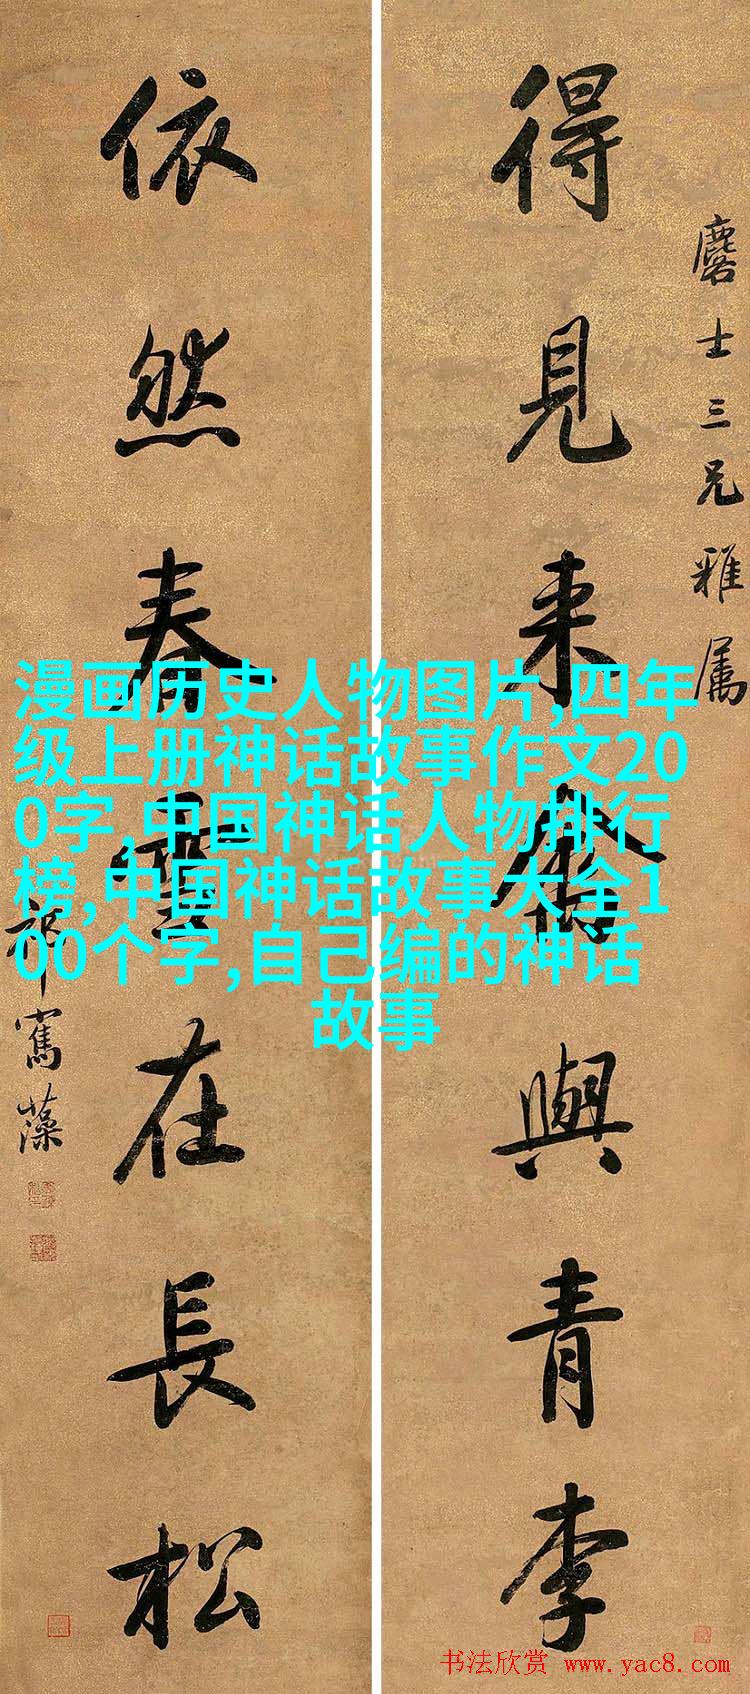 麐士三兄雅属
得見来禽與青李
依然春雪在長松
祁寯藻
漫画历史人物图片,四年
级上册神话故事作文20
0字,中国神话人物排行
榜,中国神话故事大全1
00个字,自己编的神话
故事
书法欣赏 www.yac8.com